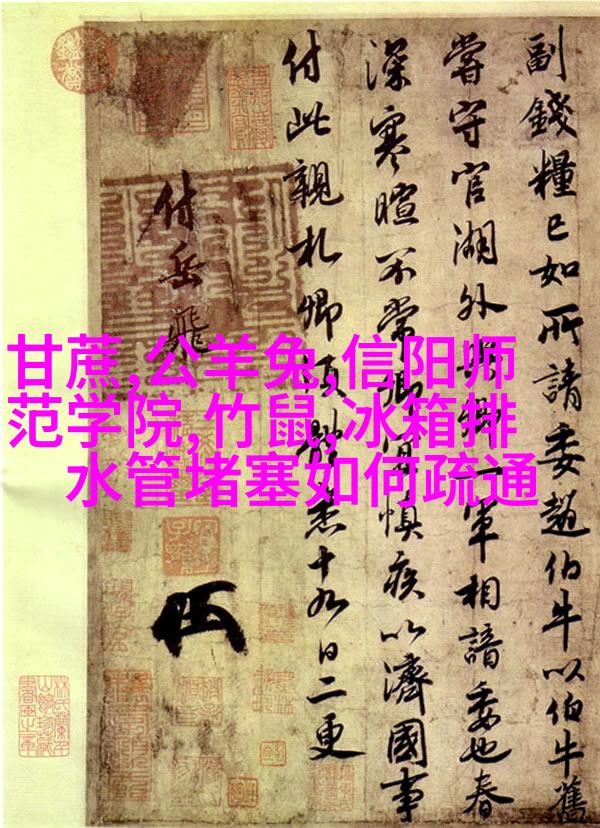 甘蔗,公羊兔,信阳师
范学院,竹鼠,冰箱排
水管堵塞如何疏通
副錢糧已如所請委趙伯牛以伯牛舊
嘗守官湖外與卿一軍相諳委也春
深寒暄不常卿宜慎疾以濟國事
付此親札卿須體悉十九日二更
付岳飛